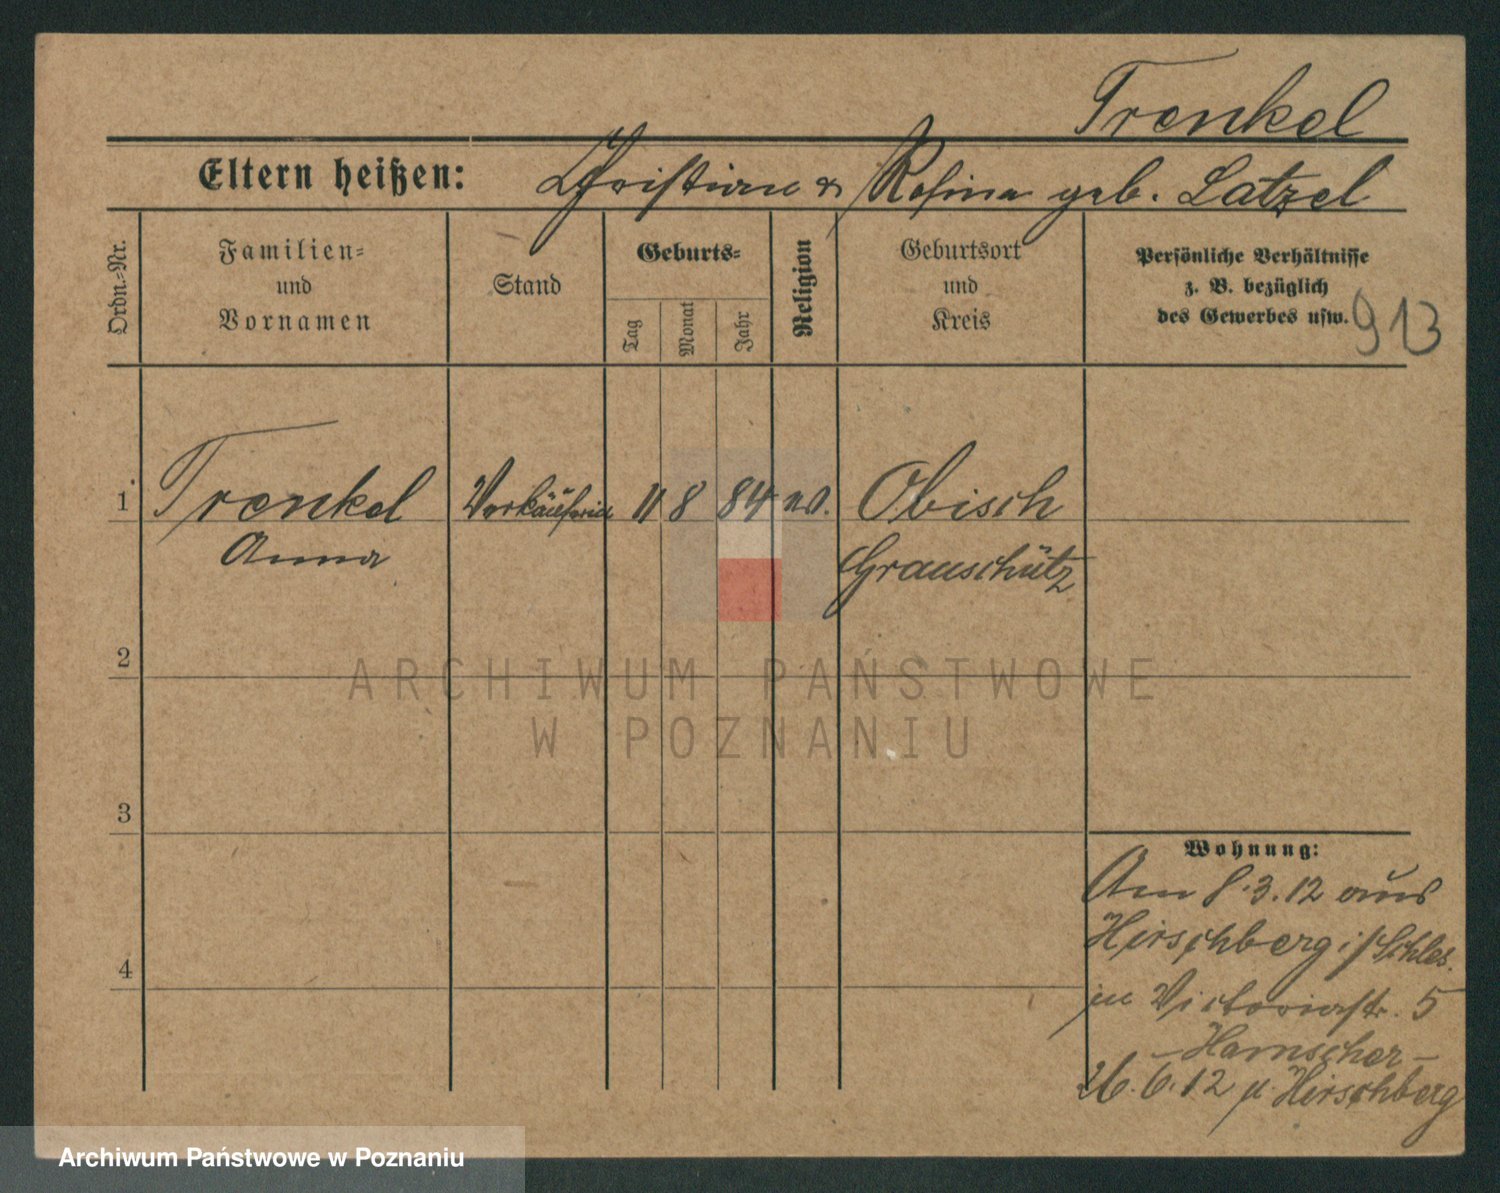 Trenkel
Eltern heißen: Christian & Rosina geb. Latzel
Ordn.-Nr.
Familien-
und
Vornamen
Stand
Geburts-
Tag
Monat
Jahr
Religion
Geburtsort
und
Kreis
Persönliche Verhältnisse
z. B. bezüglich
des Gewerbes usw.
913
1 Trenkel Verkäuferin 11 8 84 ev. Obisch
Anna Grauschütz
2
ARCHIWUM PAŃSTWOWE
W POZNANIU
3
Wohnung:
Am 8.3.12 aus
Hirschberg i/Schles.
in Victoriastr. 5
4
- Hamscher -
26.6.12 n. Hirschberg
Archiwum Państwowe w Poznaniu